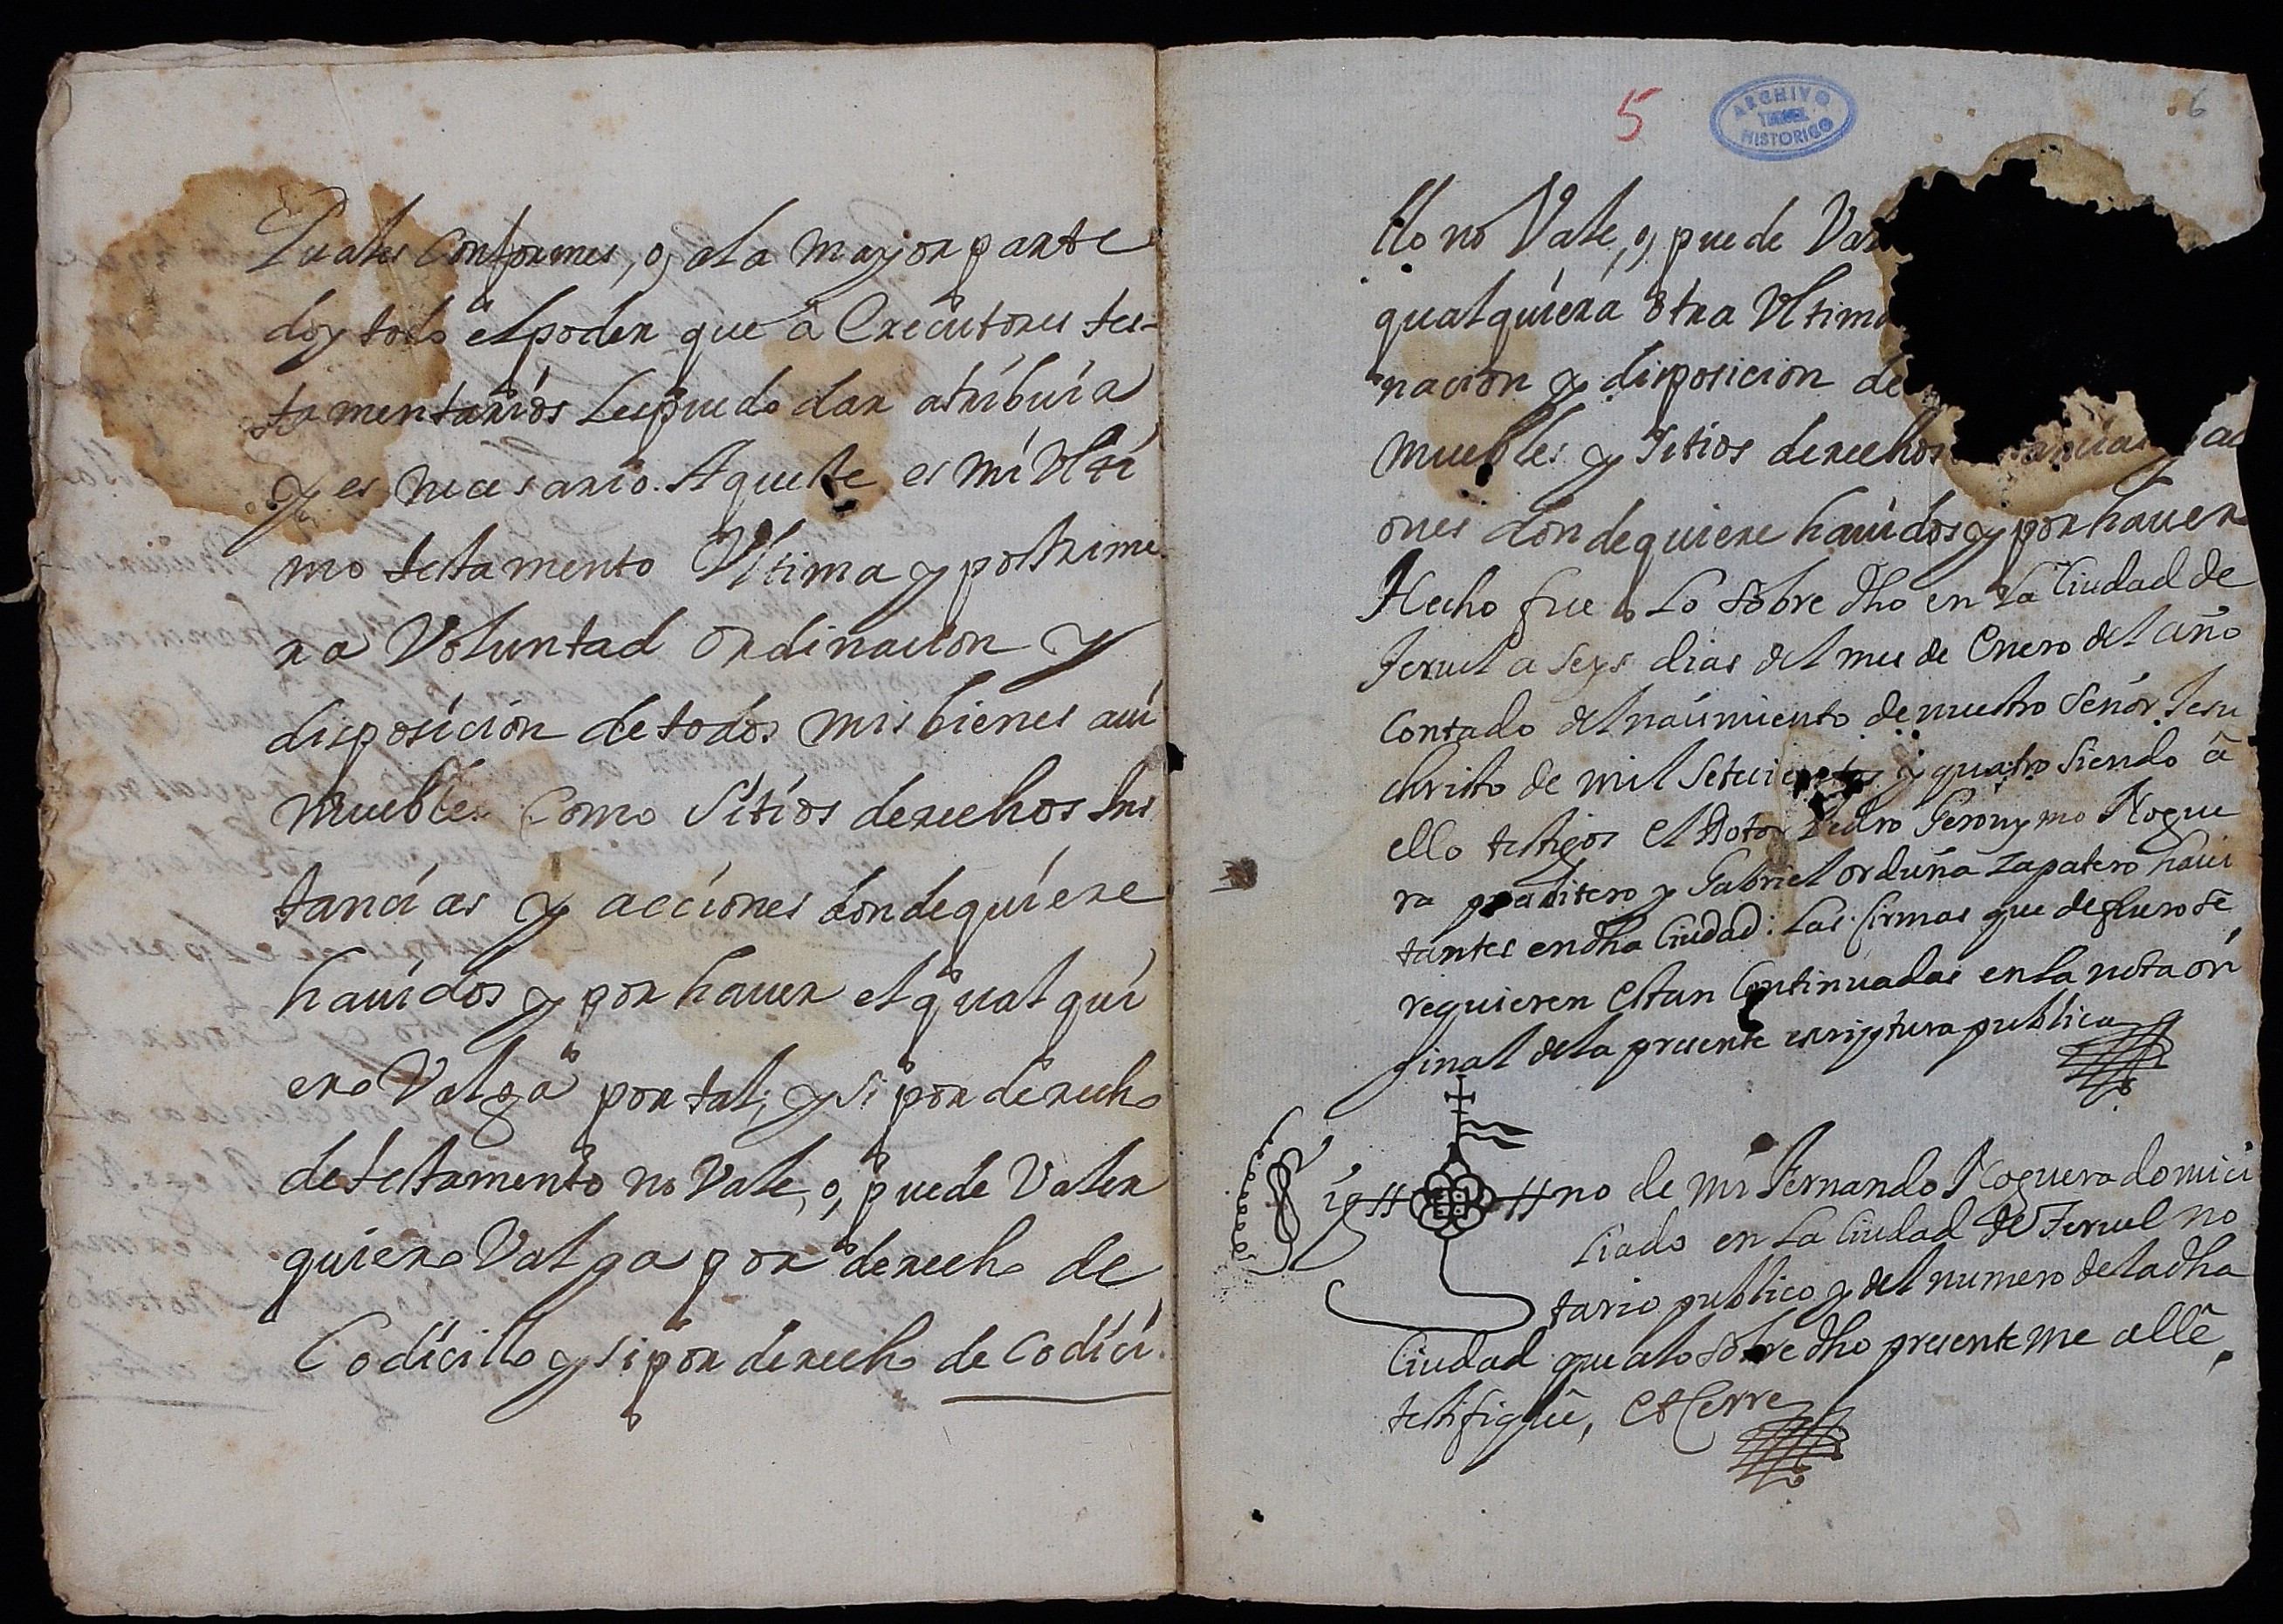 Quales conformes, o, a la mayor parte
doy todo el poder que â Executores tes-
tamentarios les puedo dar atribuir
y es necesario. Aqueste es mi Ulti
mo testamento Ultima y postrime
ra Voluntad ordinacion y
disposicion de todos mis bienes aui
muebles como Sitios derechos Ins
tancias y acciones dondequiere
hauidos y por hauer el qual qui
ero Valga por tal, y si por derecho
de testamento no Vale, o, puede Valer
quiero Valga por derecho de
Codicillo y si por derecho de Codici
5
ARCHIVO
TERUEL
HISTORICO
6
llo no Vale, o, puede Va
qualquiera otra Ultima
nacion y disposicion de
muebles y Sitios derechos tancias y ac
ones dondequiere hauidos y por hauer
Hecho fue lo sobre dho en la Ciudad de
Teruel a Seys dias del mes de Enero del año
Contado del naçimiento de nuestro Señor Jesu
christo de mil Setecientos y quatro Siendo â
ello testigos el Dotor Pedro Geronymo Nogue
ra presbitero y Gabriel Orduña Zapatero haui
tantes en dha Ciudad: Las firmas que de fuero se
requieren estan Continuadas en la nota ori
ginal de la presente escriptura publica
Sig no de mi Fernando Noguera domici
liado en la Ciudad de Teruel no
tario publico y del numero de la dha
Ciudad que a lo sobre dho presente me allê,
testifiquê, et Cerre